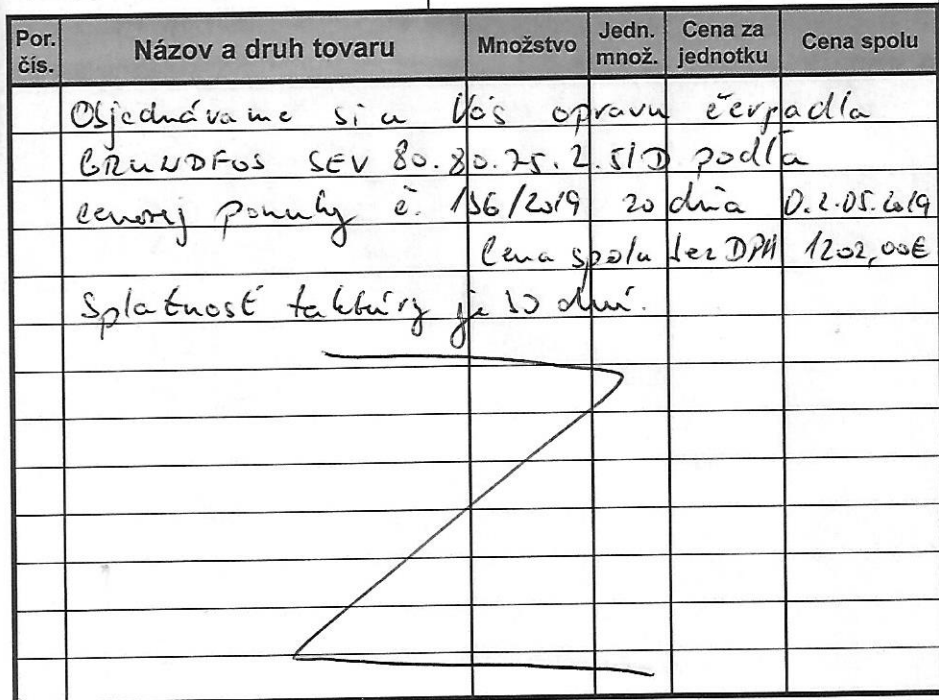 Por. čís. Názov a druh tovaru Množstvo Jedn. množ. Cena za jednotku Cena spolu
Objednávame si u Vás opravu čerpadla
GRUNDFOS SEV 80.80.75.2.51D podľa
cenovej ponuky č. 156/2019 zo dňa 02.05.2019
Cena spolu bez DPH 1202,00€
Splatnosť faktúry je dní.